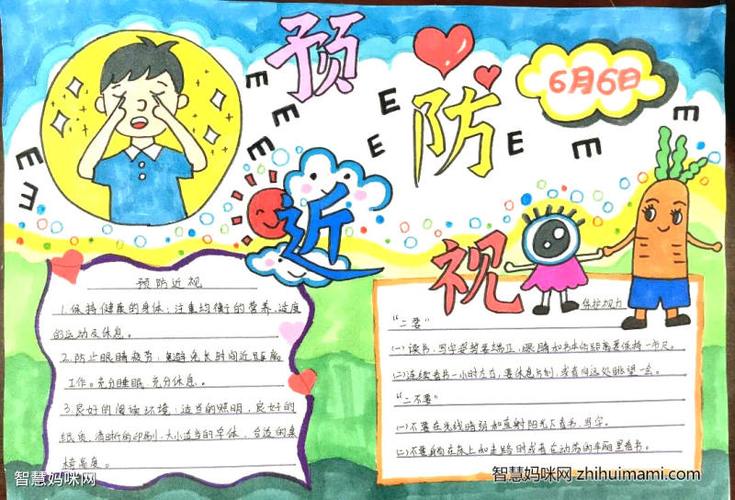 预
防
近
视
6月6日
E
E
E
E
E
E
E
E
E
E
预防近视
1.保持健康的身体:注重均衡的营养、适度
的运动及休息。
2.防止眼睛疲劳:避免长时间近距离
工作。充分睡眠、充分休息。
3.良好的阅读环境:适当的照明,良好的
纸质,清晰的印刷,大小适当的字体,合适的桌
椅高度。
保护视力
“二要”
(一)读书、写字姿势要端正,眼睛和书本的距离要保持一市尺。
(二)连续看书一小时左右,要休息片刻,或者向远处眺望一会。
“二不要”
(一)不要在光线暗弱和直射阳光下看书、写字。
(二)不要躺在床上和走路时或者在动荡的车厢里看书。
智慧妈咪网
智慧妈咪网 zhihuimami.com